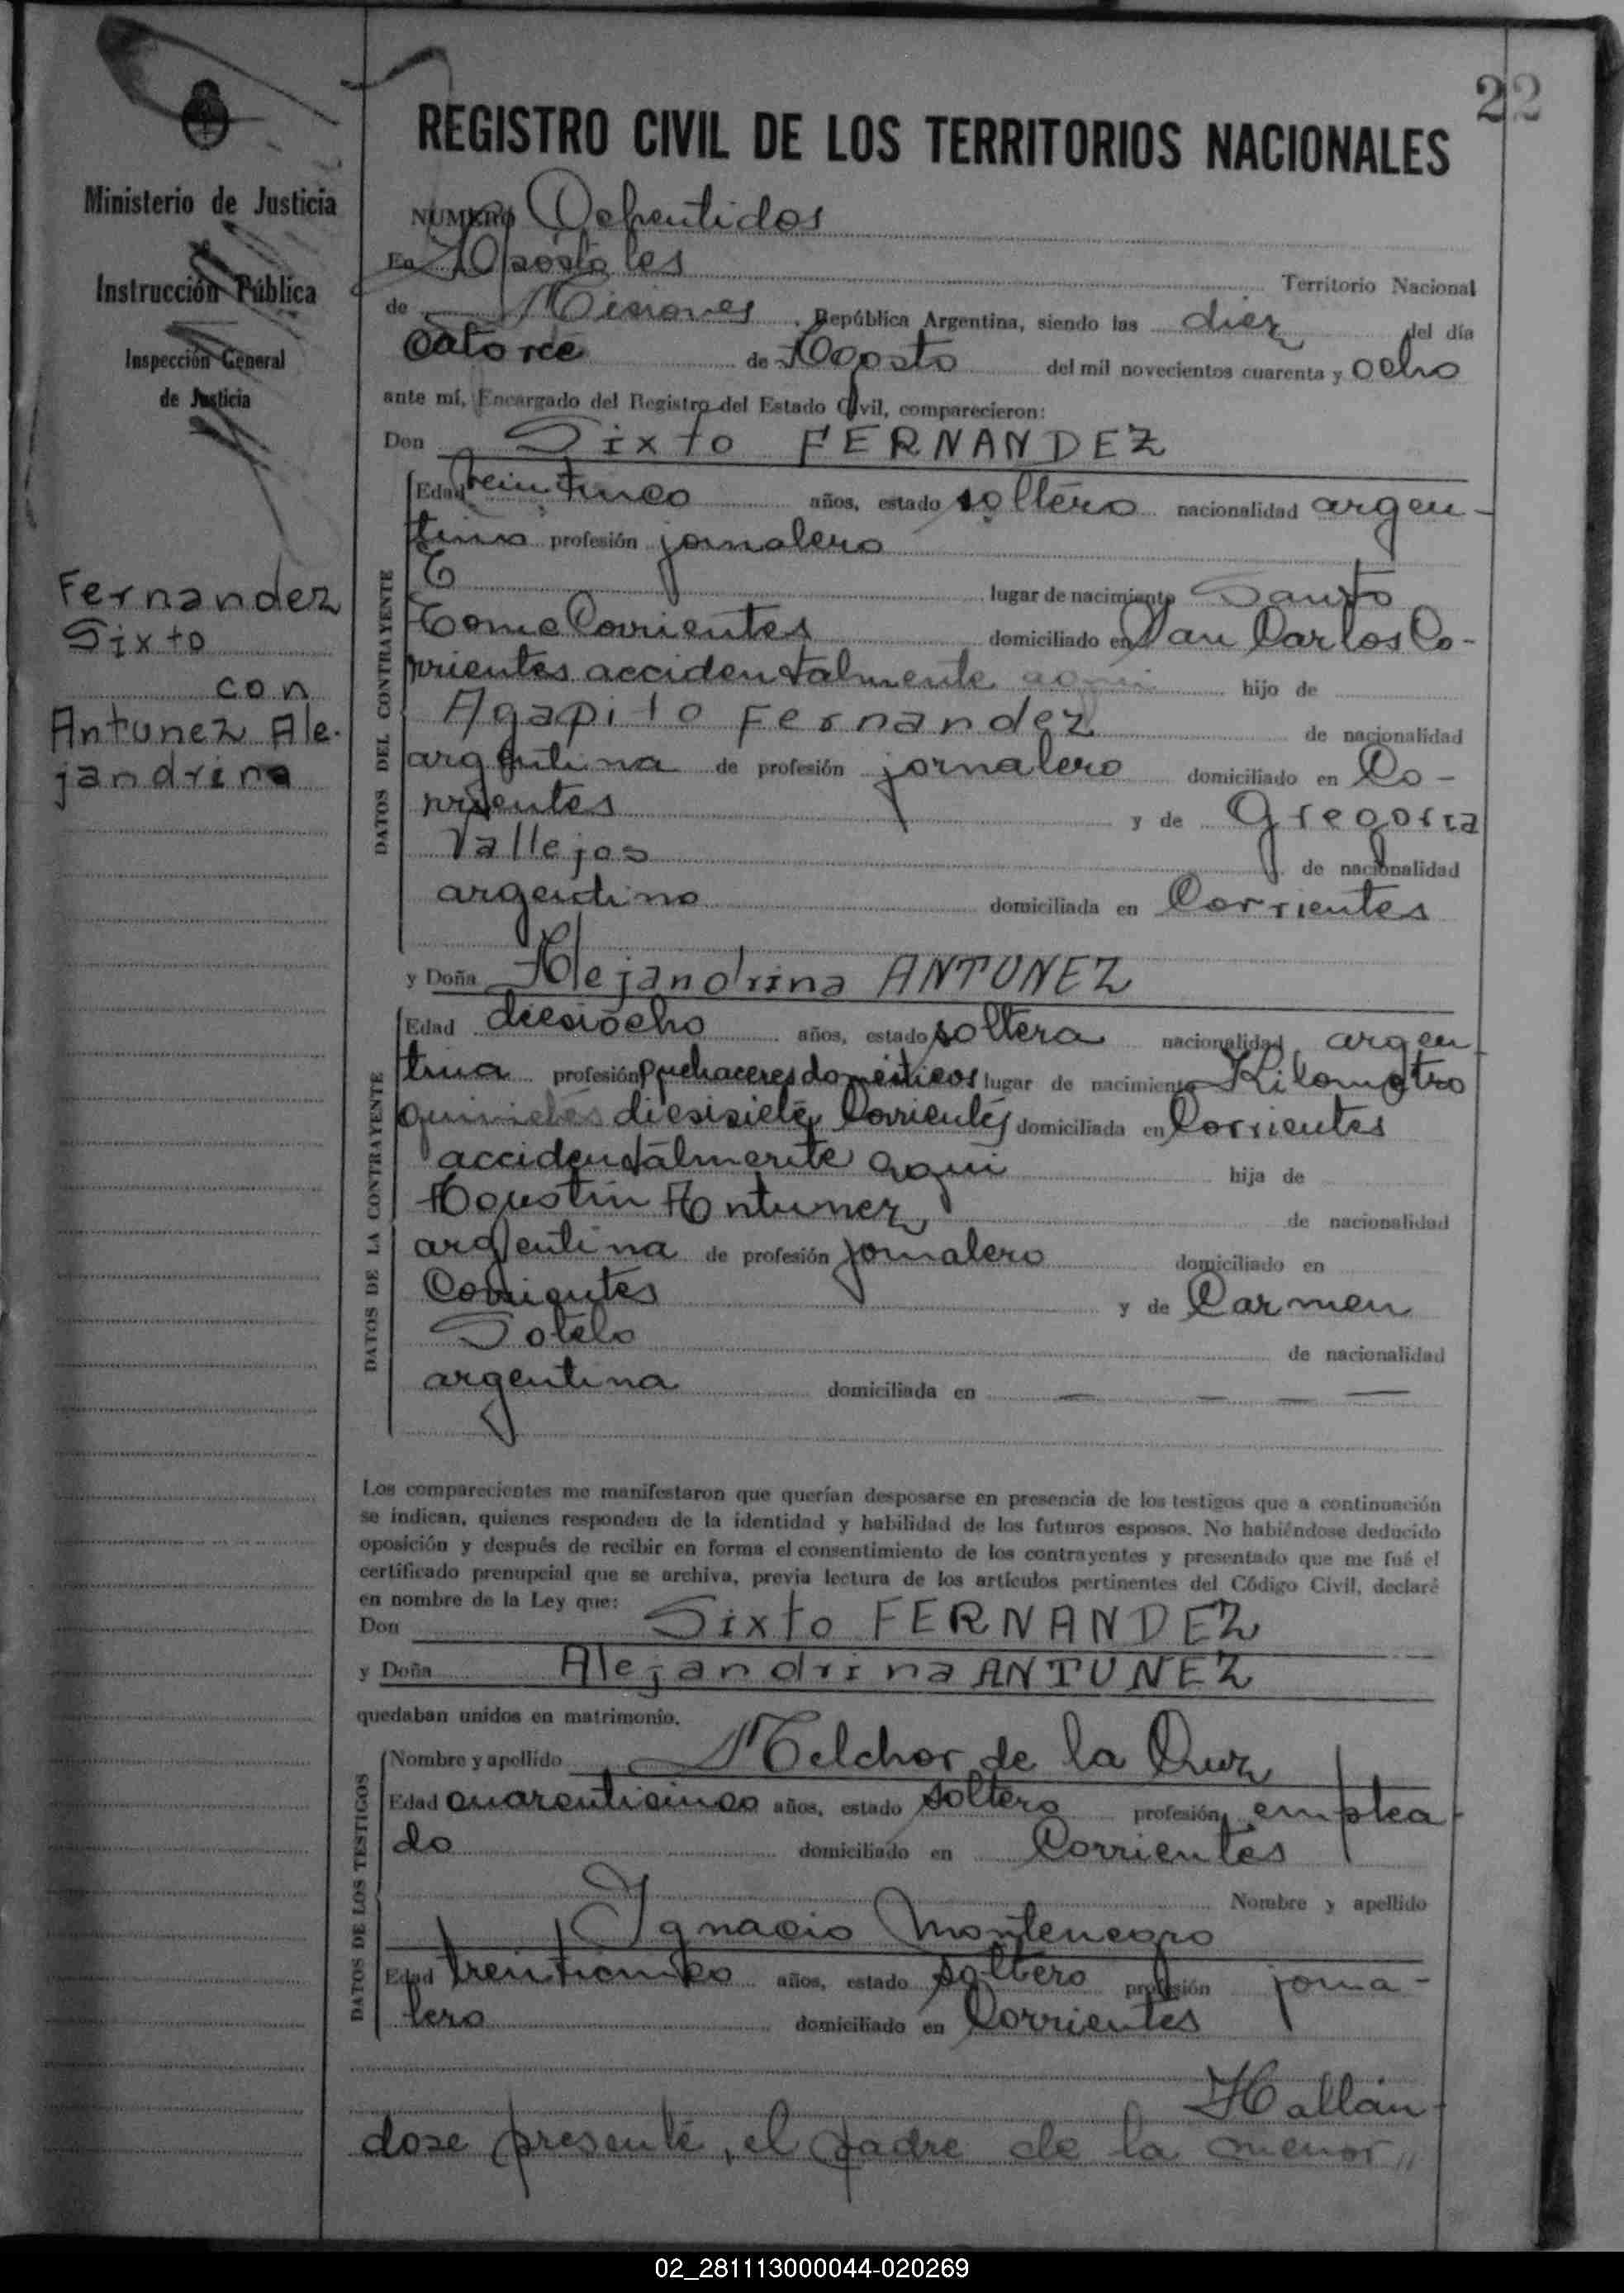 22
REGISTRO CIVIL DE LOS TERRITORIOS NACIONALES
Ministerio de Justicia
Instrucción Pública
Inspección General
de Justicia
Fernandez
Sixto
con
Antunez Ale-
jandrina
NUMERO Ochentidos
En Apóstoles Territorio Nacional
de Misiones, República Argentina, siendo las diez del día
catorce de Agosto del mil novecientos cuarenta y ocho
ante mí, Encargado del Registro del Estado Civil, comparecieron:
Don Sixto FERNANDEZ
DATOS DEL CONTRAYENTE
Edad años, estado soltero nacionalidad argen-
tina profesión jornalero
lugar de nacimiento Santo
Tome Corrientes domiciliado en San Carlos Co-
rrientes accidentalmente aqui hijo de
Agapito Fernandez de nacionalidad
argentina de profesión jornalero domiciliado en Co-
rrientes y de Gregoria
Vallejos de nacionalidad
argentina domiciliada en Corrientes
y Doña Alejandrina ANTUNEZ
DATOS DE LA CONTRAYENTE
Edad diesiocho años, estado soltera nacionalidad argen-
tina profesión quehaceres domésticos lugar de nacimiento Kilometro
quinietos diesisiete Corrientes domiciliada en Corrientes
accidentalmente aqui hija de
Agustin Antunez de nacionalidad
argentina de profesión jornalero domiciliado en
Corrientes y de Carmen
Sotelo de nacionalidad
argentina domiciliada en — — — —
Los comparecientes me manifestaron que querían desposarse en presencia de los testigos que a continuación
se indican, quienes responden de la identidad y habilidad de los futuros esposos. No habiéndose deducido
oposición y después de recibir en forma el consentimiento de los contrayentes y presentado que me fué el
certificado prenupcial que se archiva, previa lectura de los artículos pertinentes del Código Civil, declaré
en nombre de la Ley que:
Don Sixto FERNANDEZ
y Doña Alejandrina ANTUNEZ
quedaban unidos en matrimonio.
DATOS DE LOS TESTIGOS
Nombre y apellido Melchor de la Cruz
Edad cuarenticinco años, estado soltero profesión emplea-
do domiciliado en Corrientes
Nombre y apellido
Ignacio Montenegro
Edad treinticinco años, estado soltero profesión jorna-
lero domiciliado en Corrientes
Hallán-
dose presente, el padre de la menor,,
02_281113000044-020269